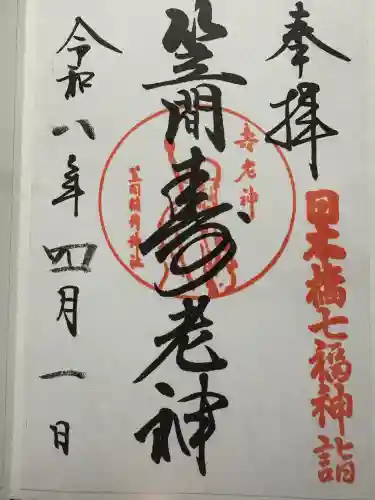 奉拝
日本橋七福神詣
笠間寿老神
寿老神
笠間稲荷神社
令和八年四月一日